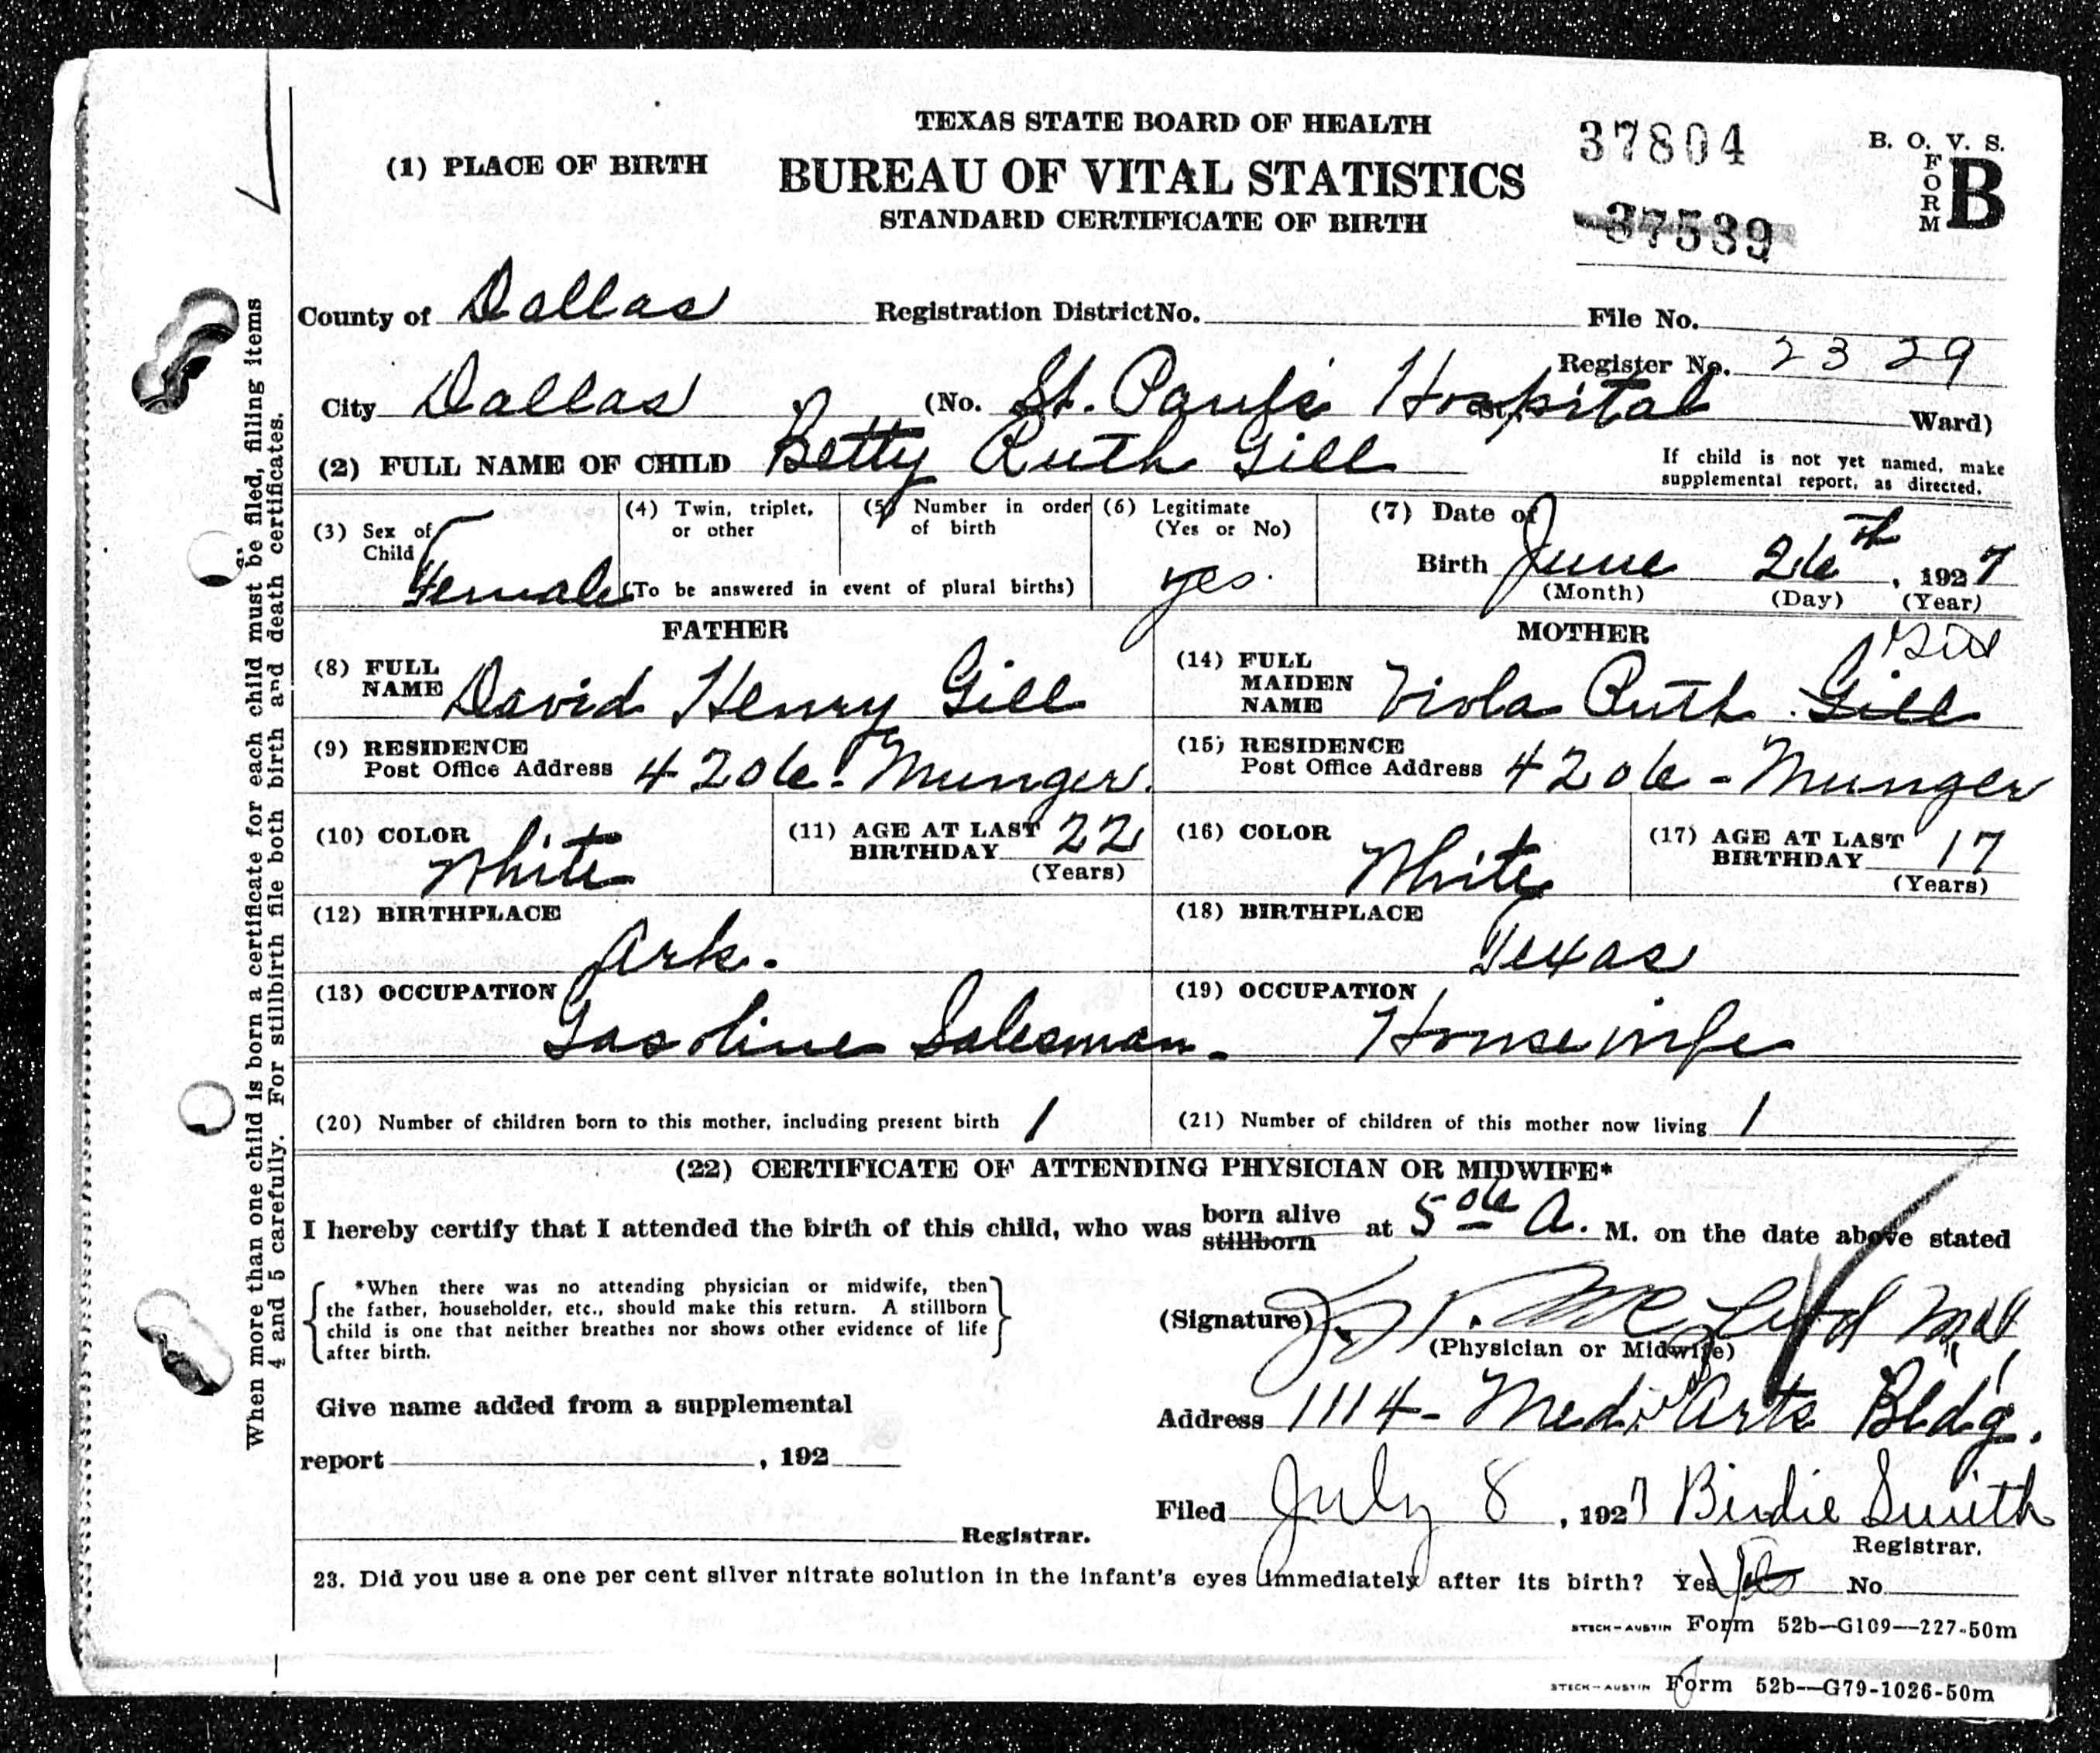 TEXAS STATE BOARD OF HEALTH
37804
B. O. V. S.
(1) PLACE OF BIRTH
BUREAU OF VITAL STATISTICS
FORM B
STANDARD CERTIFICATE OF BIRTH
37539
County of Dallas Registration District No. File No.
Register No. 2329
City Dallas (No. St. Paul's Hospital St., Ward)
(2) FULL NAME OF CHILD Betty Ruth Gill
If child is not yet named, make
supplemental report, as directed.
(3) Sex of Child Female
(4) Twin, triplet, or other
(5) Number in order of birth
(To be answered in event of plural births)
(6) Legitimate (Yes or No) yes.
(7) Date of Birth June 26th, 1927
(Month) (Day) (Year)
FATHER
(8) FULL NAME David Henry Gill
(9) RESIDENCE Post Office Address 4206 - Munger.
(10) COLOR White
(11) AGE AT LAST BIRTHDAY 22 (Years)
(12) BIRTHPLACE Ark.
(13) OCCUPATION Gasoline Salesman.
MOTHER
(14) FULL MAIDEN NAME Viola Ruth Gill
(15) RESIDENCE Post Office Address 4206 - Munger
(16) COLOR White
(17) AGE AT LAST BIRTHDAY 17 (Years)
(18) BIRTHPLACE Texas
(19) OCCUPATION Housewife
(20) Number of children born to this mother, including present birth 1
(21) Number of children of this mother now living 1
(22) CERTIFICATE OF ATTENDING PHYSICIAN OR MIDWIFE*
I hereby certify that I attended the birth of this child, who was born alive stillborn at 5 06 A. M. on the date above stated
*When there was no attending physician or midwife, then
the father, householder, etc., should make this return. A stillborn
child is one that neither breathes nor shows other evidence of life
after birth.
(Signature) McLeod M.D.
(Physician or Midwife)
Give name added from a supplemental
Address 1114 - Medical Arts Bldg.
report , 192
Filed July 8, 1927 Birdie Smith
Registrar.
Registrar.
23. Did you use a one per cent silver nitrate solution in the infant's eyes immediately after its birth? Yes Yes No
STECK-AUSTIN Form 52b—G109—227-50m
STECK-AUSTIN Form 52b—G79-1026-50m
When more than one child is born a certificate for each child must be filed, filling items
4 and 5 carefully. For stillbirth file both birth and death certificates.